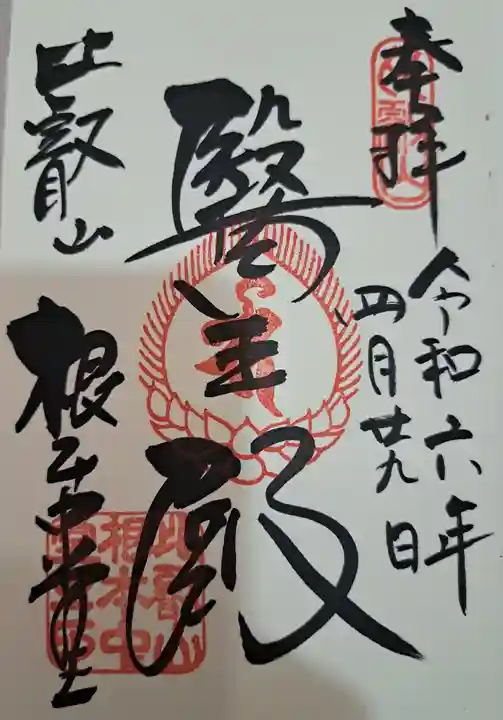 奉拝
令和六年
四月廿九日
醫王殿
比叡山
根本中堂
比叡山
根本中
堂之印